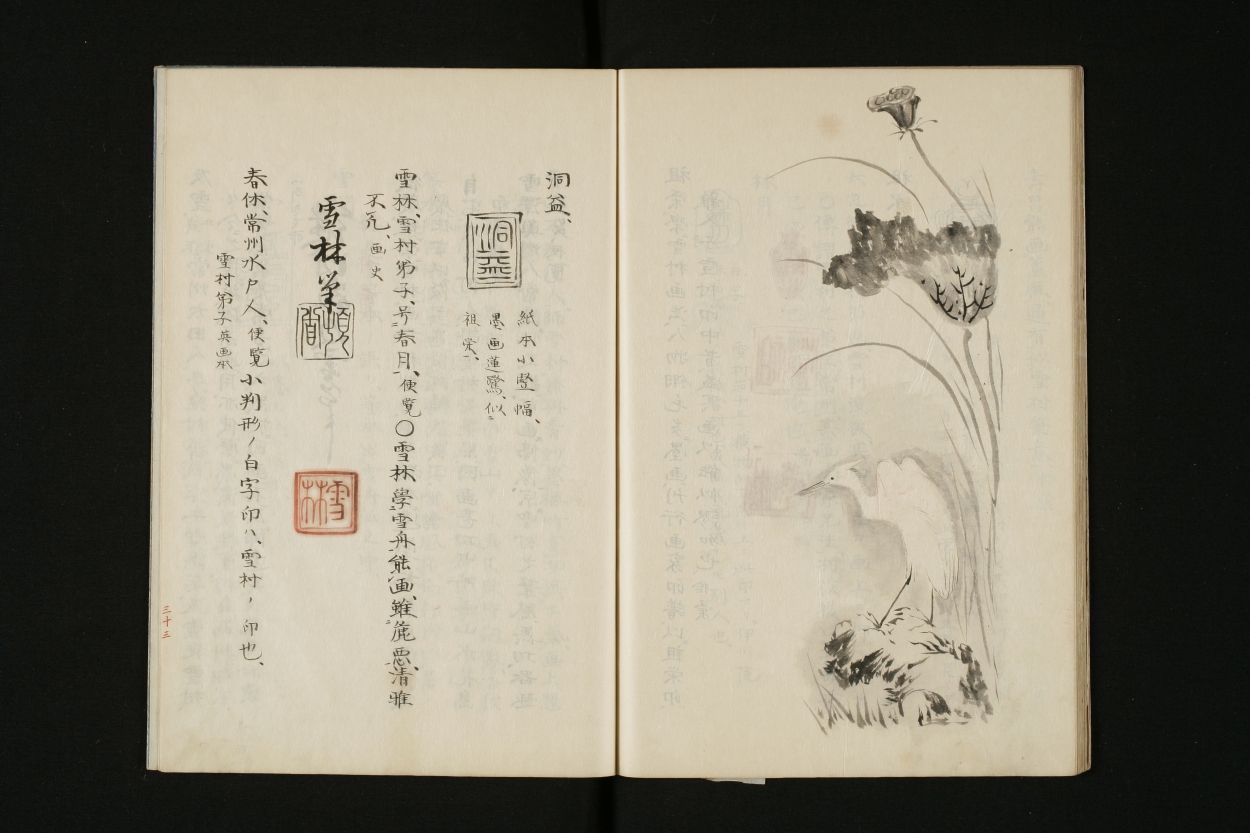 洞益、
洞益
紙本小竪幅、
墨画蓮鷺、似
祖栄、
雪林、雪村弟子、号春月、便覧〇雪林學雪舟能画、雖麁悪清雅
不凡、画史
雪林筆
雪林
春休、常州水戸人、便覧小判形ノ白字印ハ、雪村ノ印也、
雪村弟子英画本
三十三